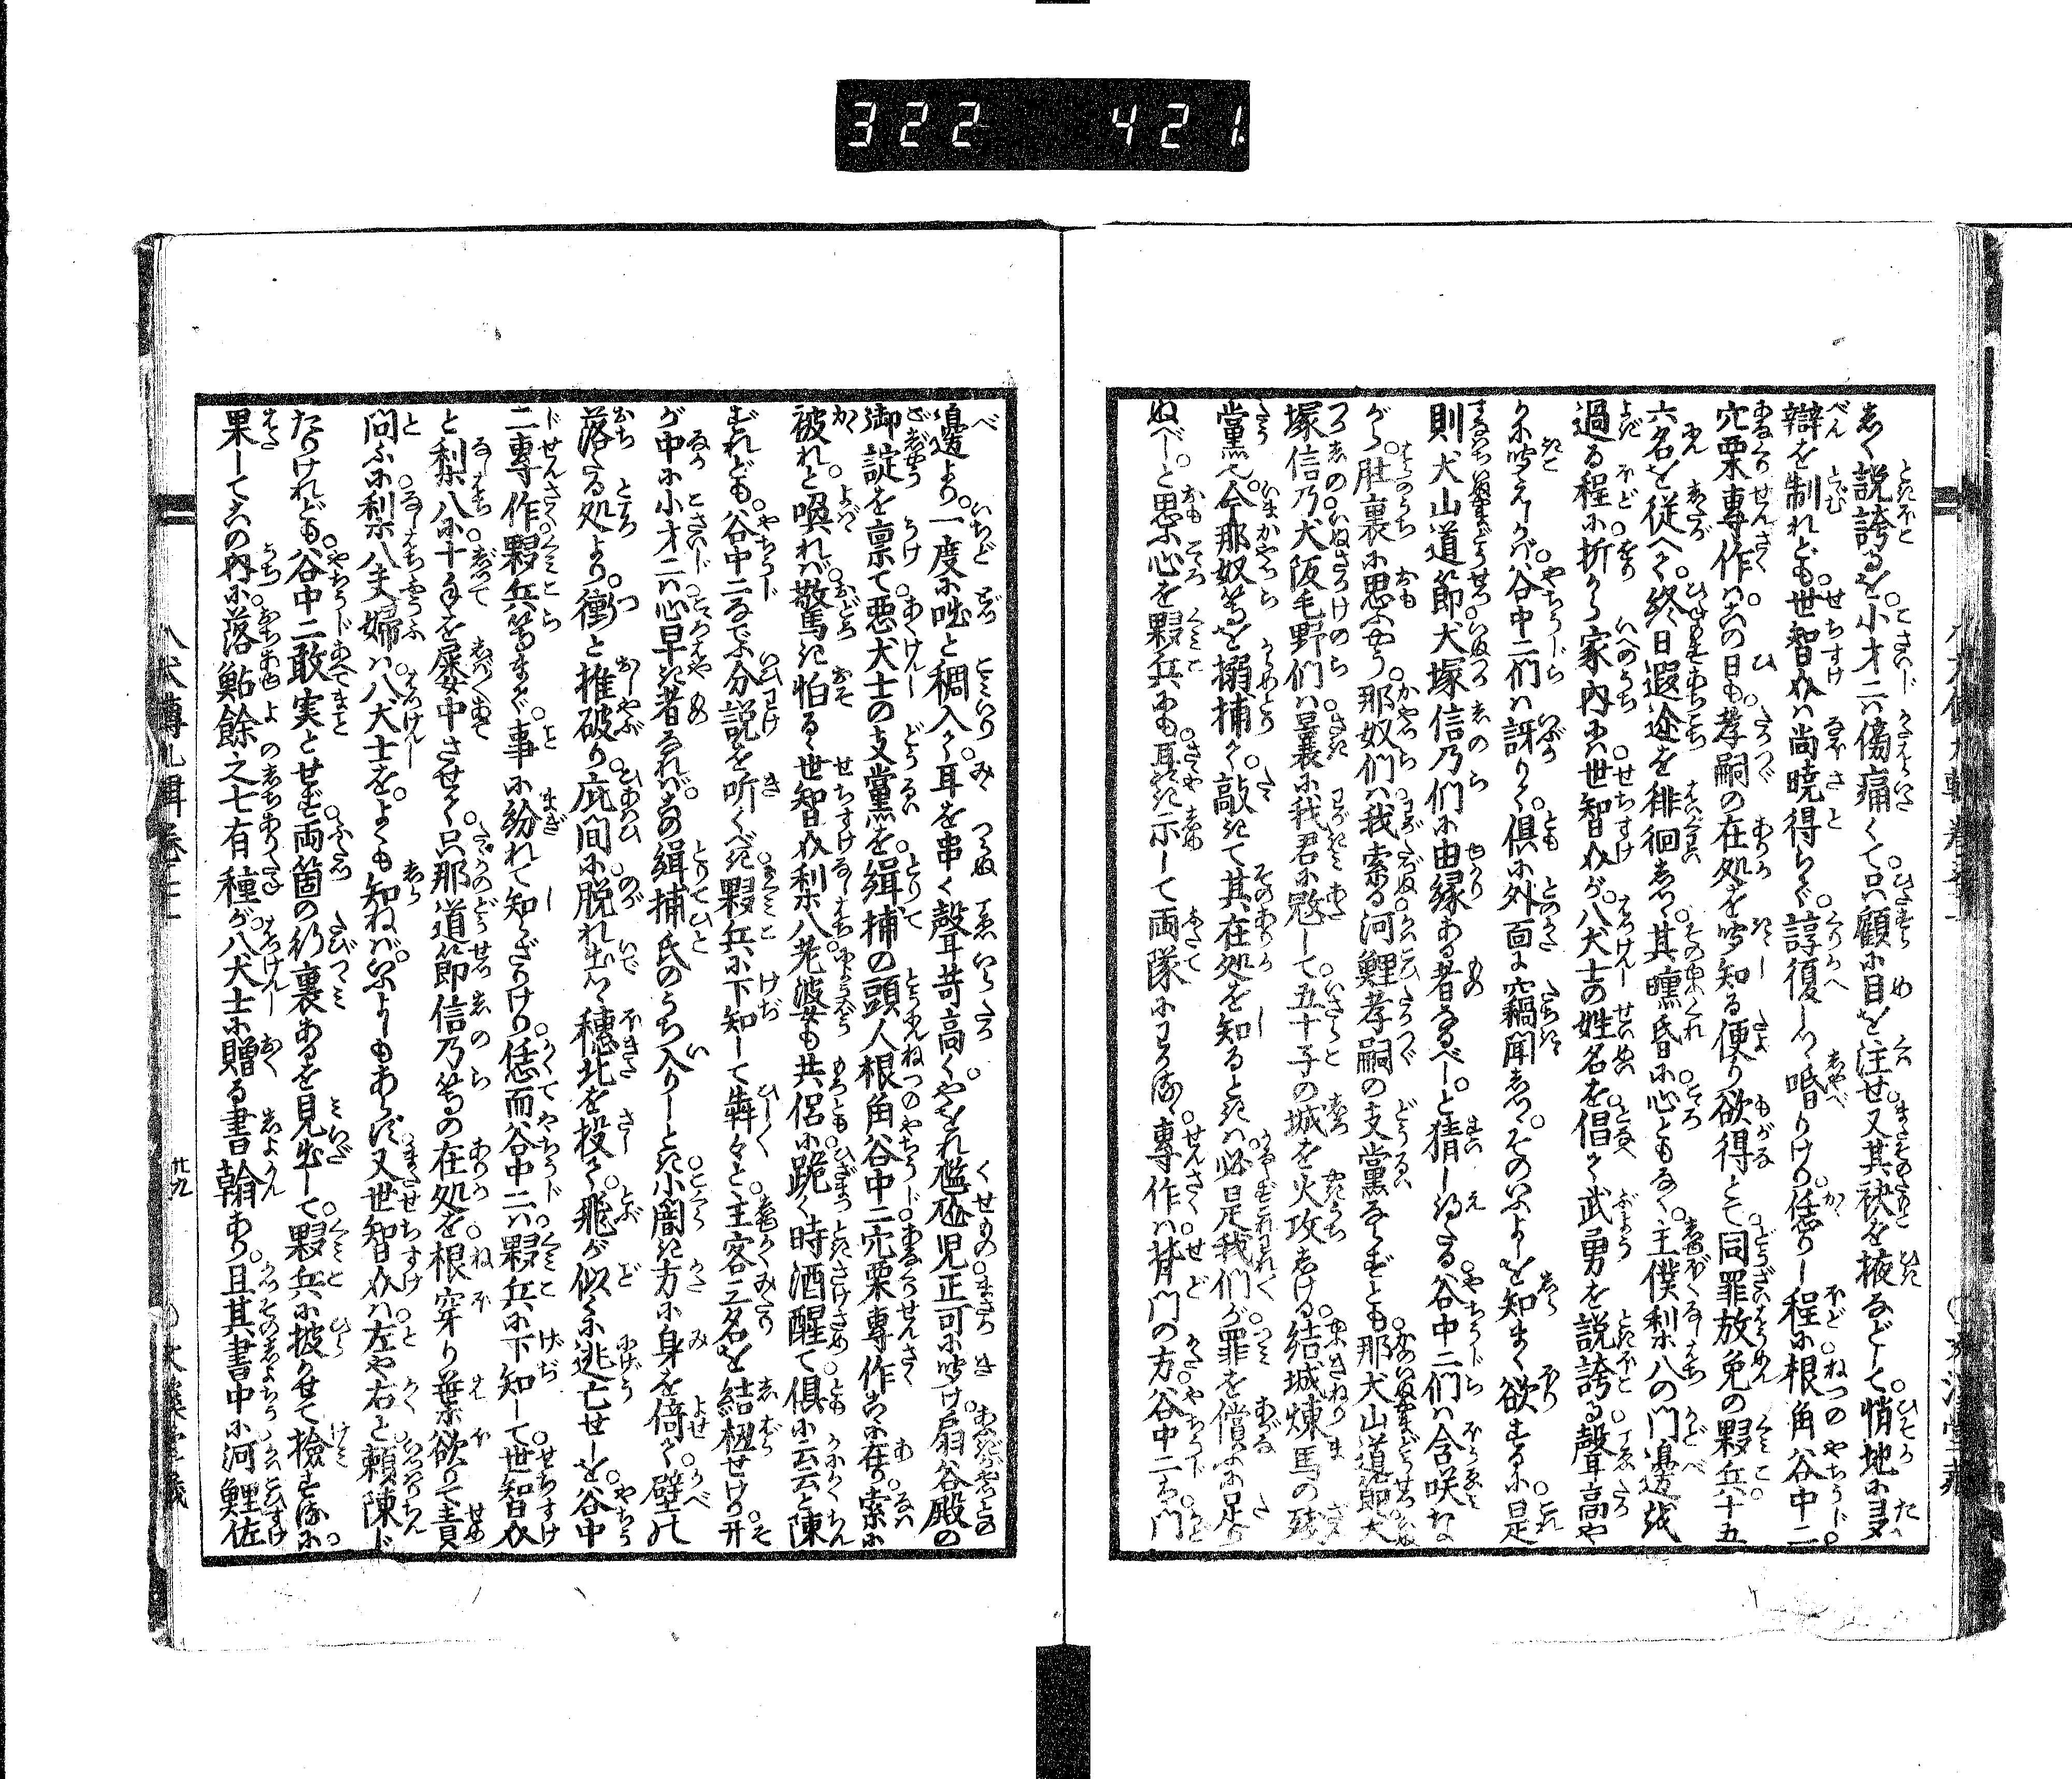 322 421
しく説誇るを。小才二は傷痛くて。只顧に目を注せ。又其袂を掖などして。悄地に多
辯を制れども。世智介は尚暁得らず。諄復しつゝ喋りける。任りし程に。根角谷中二。
穴栗專作は。この日も孝嗣の在処を。聞知る便り欲得とて。同罪放免の夥兵。十五
六名を従へて。終日遐迩を徘徊しつ。其曛昏に心ともなく。主僕梨八の門邊を
過る程に。折から家内には世智介が。八犬士の姓名を。倡て武勇を説誇る。聲高や
かに聞えしかば。谷中二們は訝りて。俱に外面に竊聞しつ。そのいふよしを知まく欲するに。是
則犬山道節。犬塚信乃們に由縁ある者なるべし。と猜し得たる谷中二們は含咲な
がら。肚裏に思ふやう。那奴們は我索る。河鯉孝嗣の支黨ならずとも。那犬山道節。犬
塚信乃。犬阪毛野們は。曩に我君に寇して。五十子の城を火攻しける。結城煉馬の残
黨也。今那奴等を搦捕て。敲きて其在処を知るときは。必是我們が罪を償ふに足り
ぬべし。と思ふ心を夥兵にも。耳に示して両隊にわかち。專作は背門の方。谷中二は門
邊より。一度に咄と稠入て。耳を串く聲苛高く。やをれ癖児正可に听け。扇谷殿の
御諚を禀て。悪犬士の支黨を。緝捕の頭人根角谷中二。穴栗專作こゝに在り。索に
被れと喚れば。驚馬き怕るゝ世智介梨八。老婆も共侶に跪く。時酒醒て。俱に云云と陳
ずれども。谷中二なでふ分説を听くべき。夥兵に下知して犇々と。主客三名を結扭せけり。开
が中に小才二は。心早き者なれば。この緝捕氏のうち入りしとき。小闇き方に身を倚て。壁の
落たる処より。衝と推破り。庇間に脱れ出つゝ穂北を投て。飛が似くに逃亡せしを。谷中
二專作。夥兵等まで。事に紛れて知ざりけり。恁而谷中二は夥兵に下知して。世智介
と梨八に。十手を屡中させて。只那道節信乃等の在処を。根穿り葉欲りて責
問ふに。梨八夫婦は八犬士を。よくも知ねば。いふよしもあらず。又世智介は左や右と。頼陳じ
たりけれども。谷中二敢実とせず。両箇の行裹あるを見出して。夥兵に披かせて檢するに。
果してこの内に。落鮎餘之七有種が。八犬士に贈る書翰あり。且其書中に河鯉佐
八犬傳九輯卷二十一
廿九